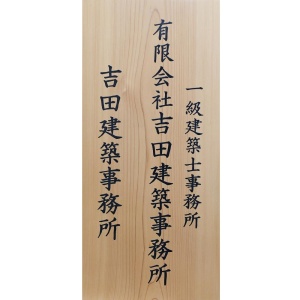 一級建築士事務所
有限会社吉田建築事務所
吉田建築事務所